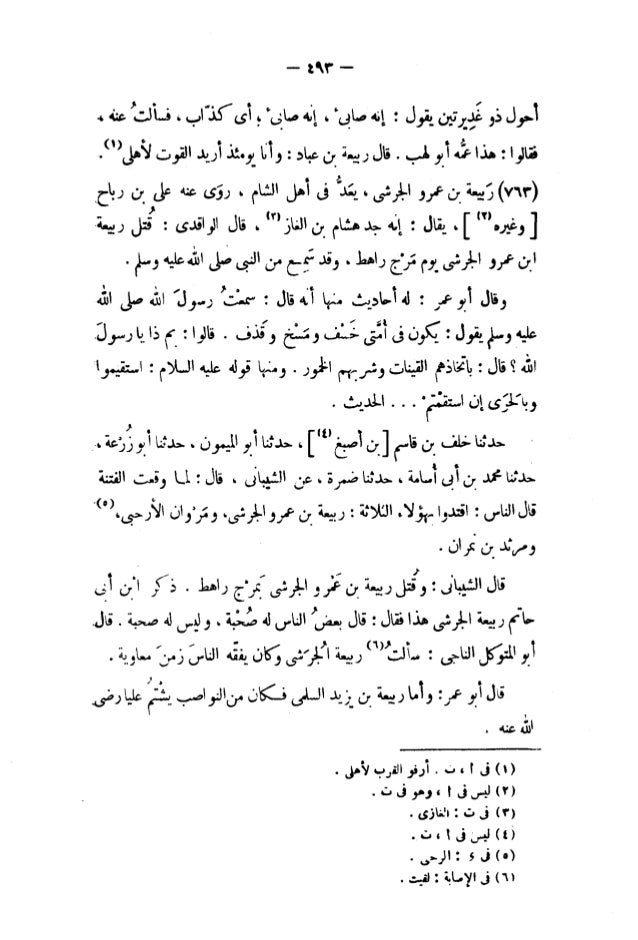 — ٤٩٣ —
أحول ذو غَدِيرتين يقول : إنه صابىٔ ، إنه صابىٔ ؛ أى كذّاب ، فسألتُ عنه ،
فقالوا : هذا عمُّه أبو لهب . قال ربيعة بن عباد : وأنا يومئذ أريد القوت لأهلى(١).
(٧٦٣) رَبيعة بن عمرو الجرشى ، يعَدُّ فى أهل الشام ، روَى عنه على بن رباح
[ وغيره(٢) ] ، يقال : إنه جد هشام بن الغاز(٣) ، قال الواقدى : قُتل ربيعة
ابن عمرو الجرشى يوم مَرْج راهط ، وقد سَمِع من النبى صلى الله عليه وسلم .
وقال أبو عمر : له أحاديث منها أنه قال : سمعْتُ رسولَ الله صلى الله
عليه وسلم يقول : يكون فى أمَّتى خَسْف ومَسْخ وقَذف . قالوا : بم ذا يا رسولَ
الله ؟ قال : باتخاذهم القينات وشربهم الخمور . ومنها قوله عليه السلام : استقيموا
وبالحَرَى إن استقمْتمْ ... الحديث .
حدثنا خلف بن قاسم [ بن أصبغ(٤) ] ، حدثنا أبو الميمون ، حدثنا أبو زُرْعة ،
حدثنا محمد بن أبى أسامة ، حدثنا ضمرة ، عن الشيبانى ، قال : لما وقعت الفتنة
قال الناس : اقتدوا بهؤلاء الثلاثة : ربيعة بن عمرو الجرشى ، ومَرْوان الأرحبى،(٥)
ومرثد بن نمران .
قال الشيبانى : وقُتل ربيعة بن عَمْرو الجرشى بَمرْج راهط . ذكر ابن أبى
حاتم ربيعة الجرشى هذا فقال : قال بعضُ الناس له صُحْبة ، وليس له صحبة . قال
أبو المتوكل الناجى : سألتُ(٦) ربيعة الجَرَشى وكان يفقّه الناسَ زمنَ معاوية .
قال أبو عمر : وأما ربيعة بن يزيد السلمى فكان من النواصب يشْتمُ عليا رضى
الله عنه .
(١) فى أ ، ت . أرفو القرب لأهلى .
(٢) ليس فى أ ، وهو فى ت .
(٣) فى ت : الغازى .
(٤) ليس فى أ ، ت .
(٥) فى ء : الرحى .
(٦) فى الإصابة : لقيت .